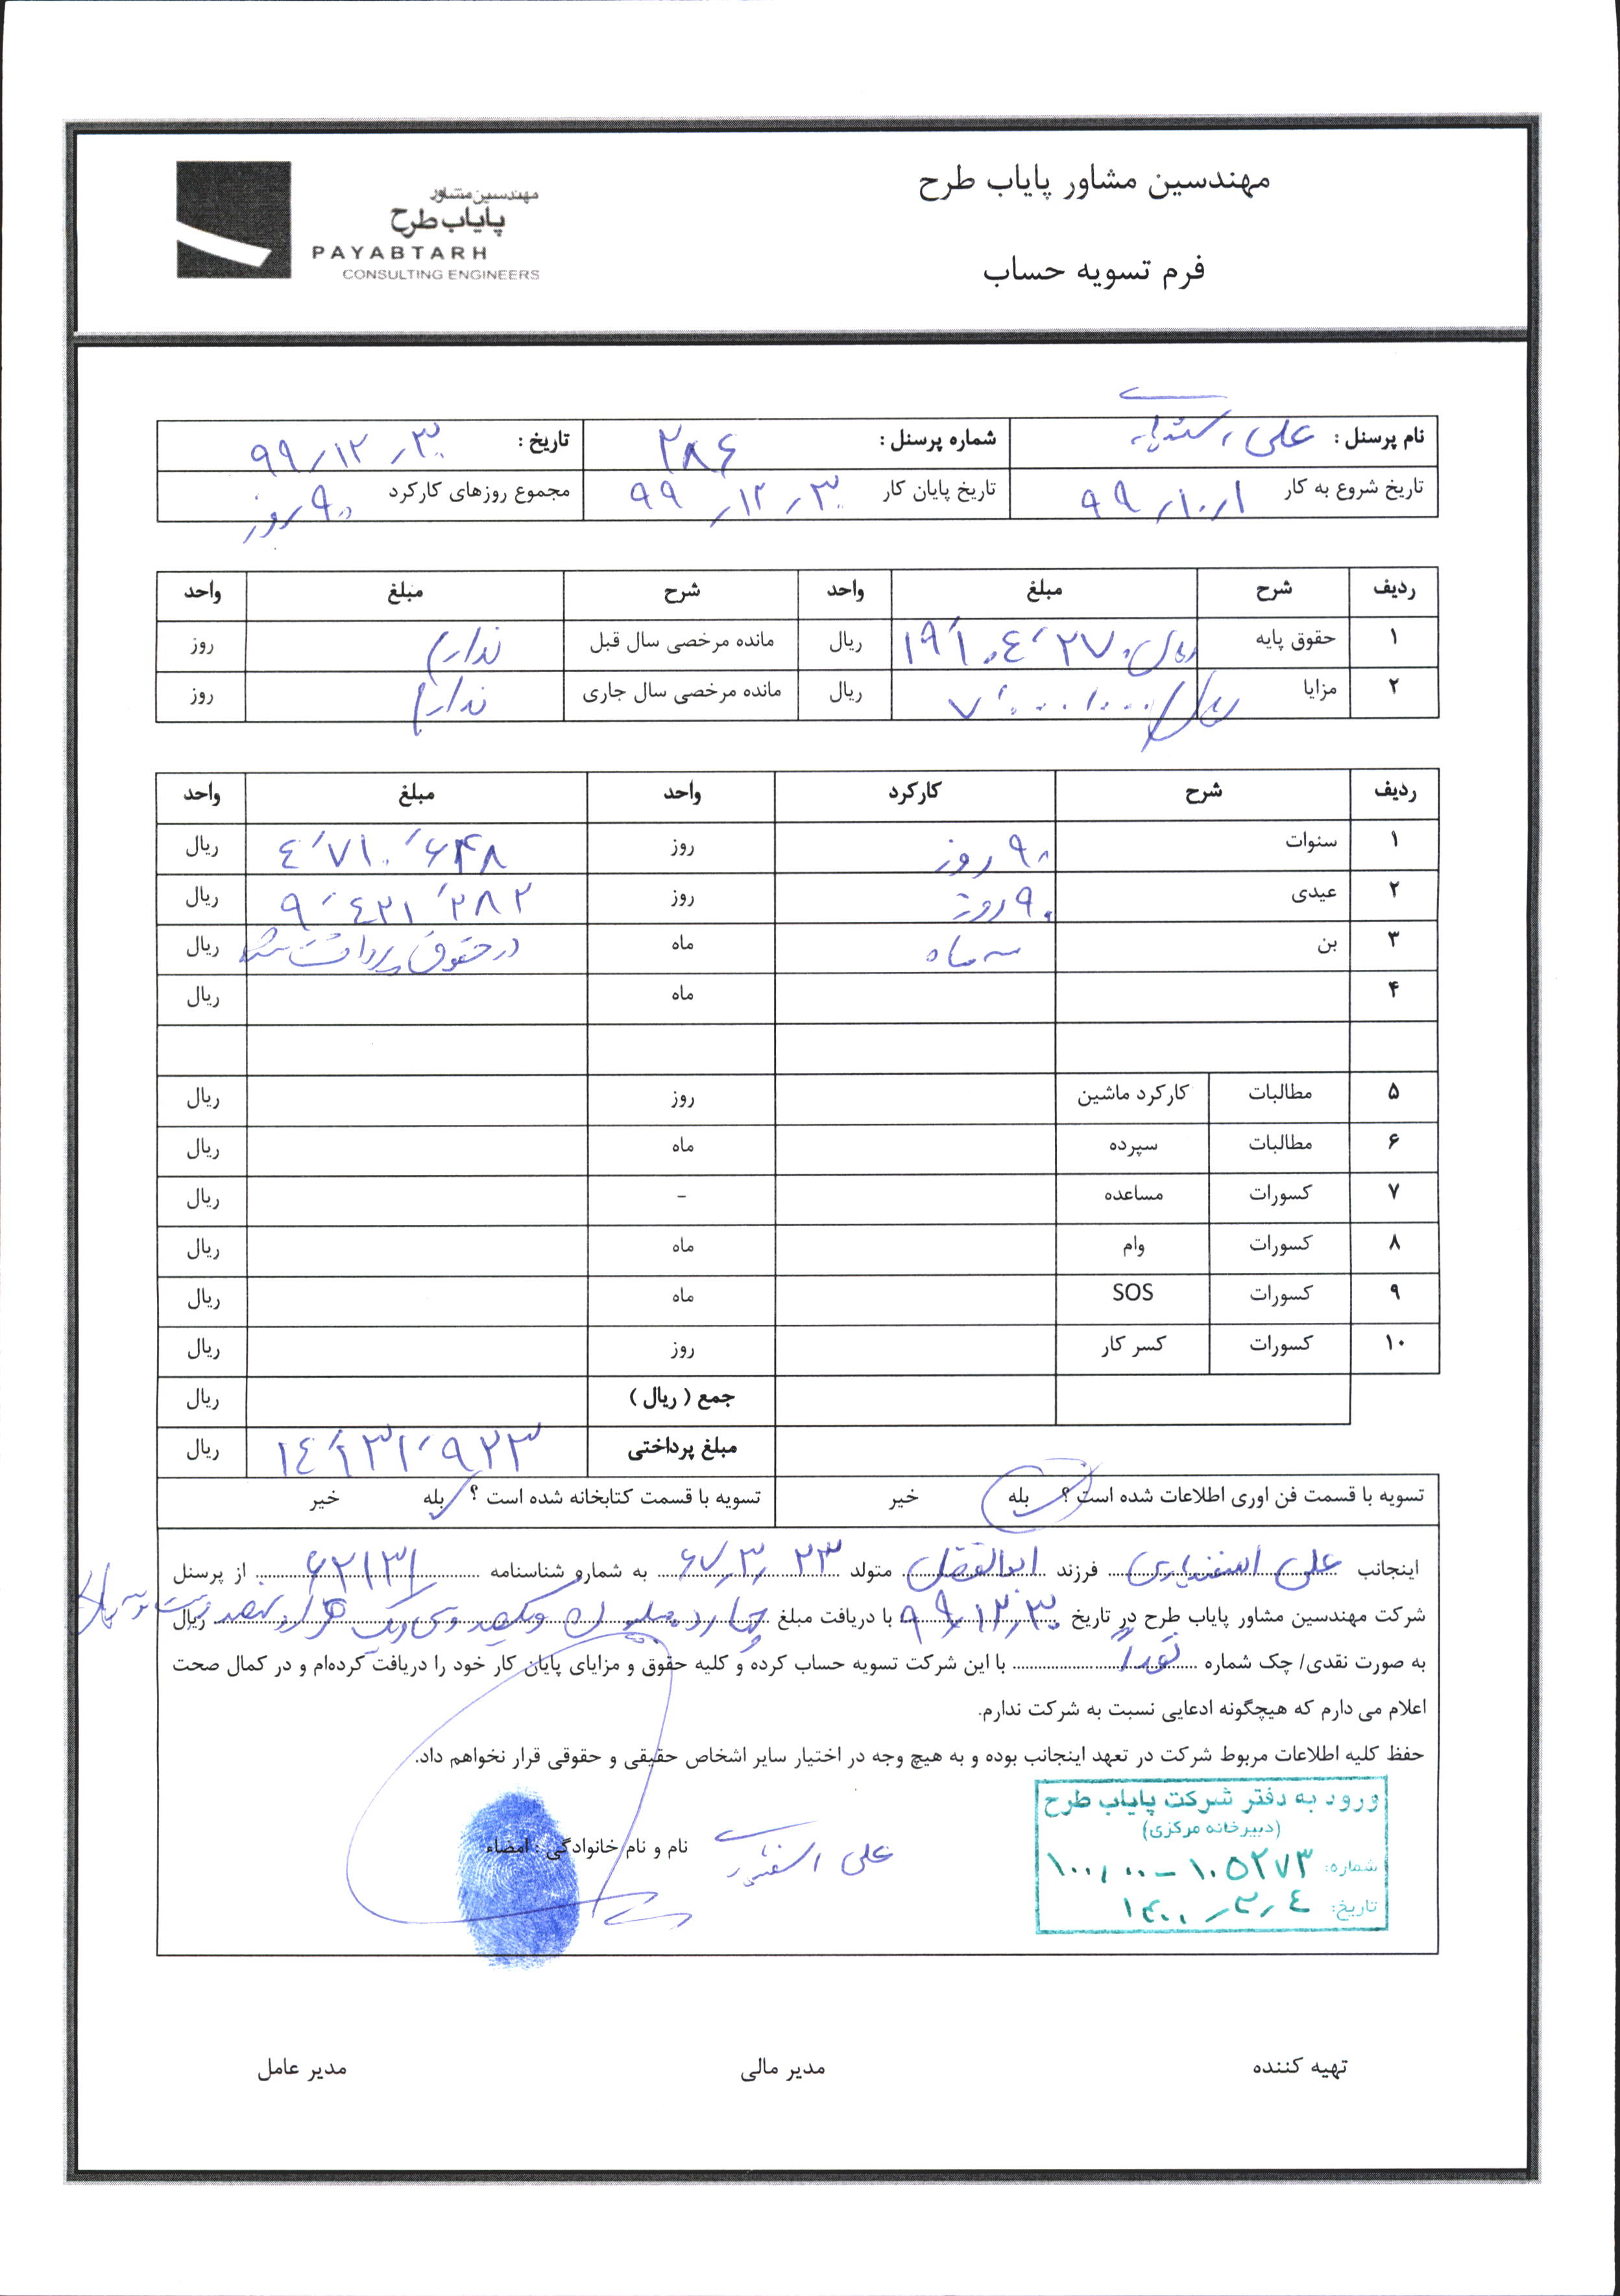 مهندسین مشاور پایاب طرح
فرم تسویه حساب
مهندسین مشاور
پایاب طرح
PAYABTARH
CONSULTING ENGINEERS
نام پرسنل : علی شماره پرسنل : ۲۸۶ تاریخ : ۹۹/۱۲/۳۰
تاریخ شروع به کار ۹۹/۱۰/۱ تاریخ پایان کار ۹۹/۱۲/۳۰ مجموع روزهای کارکرد ۹۰ روز
ردیف شرح مبلغ واحد شرح مبلغ واحد
۱ حقوق پایه ریال مانده مرخصی سال قبل ندارم روز
۲ مزایا ریال مانده مرخصی سال جاری ندارم روز
ردیف شرح کارکرد واحد مبلغ واحد
۱ سنوات ۹۰ روز روز ۴٬۷۱۰٬۶۴۸ ریال
۲ عیدی ۹۰ روز روز ۹٬۴۲۱٬۲۸۲ ریال
۳ بن سه ماه ماه در حقوق پرداخت شد ریال
۴ ماه ریال
۵ مطالبات کارکرد ماشین روز ریال
۶ مطالبات سپرده ماه ریال
۷ کسورات مساعده - ریال
۸ کسورات وام ماه ریال
۹ کسورات SOS ماه ریال
۱۰ کسورات کسر کار روز ریال
جمع ( ریال ) ریال
مبلغ پرداختی ۱۴٬۱۳۱٬۹۲۳ ریال
تسویه با قسمت فن اوری اطلاعات شده است ؟ بله خیر تسویه با قسمت کتابخانه شده است ؟ بله خیر
اینجانب علی اسفندیاری فرزند ابوالفضل متولد ۶۷/۳/۲۳ به شماره شناسنامه ۶۲۱۳۱ از پرسنل
شرکت مهندسین مشاور پایاب طرح در تاریخ ۹۹/۱۲/۳۰ با دریافت مبلغ چهارده میلیون و یکصد و سی و یک هزار و نهصد و بیست و سه ریال ریال
به صورت نقدی/ چک شماره نقداً با این شرکت تسویه حساب کرده و کلیه حقوق و مزایای پایان کار خود را دریافت کرده‌ام و در کمال صحت
اعلام می دارم که هیچگونه ادعایی نسبت به شرکت ندارم.
حفظ کلیه اطلاعات مربوط شرکت در تعهد اینجانب بوده و به هیچ وجه در اختیار سایر اشخاص حقیقی و حقوقی قرار نخواهم داد.
ورود به دفتر شرکت پایاب طرح
(دبیرخانه مرکزی)
شماره: ۱۰۰/۰۰-۱۰۵۲۷۳
تاریخ: ۱۴۰۰/۲/۴
نام و نام خانوادگی : امضاء
علی
تهیه کننده مدیر مالی مدیر عامل